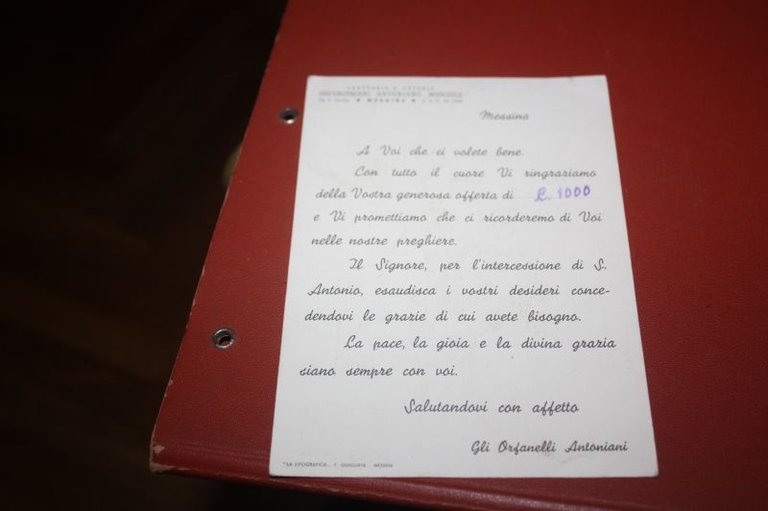 ORFANOTROFIO ANTONIANO MASCHILE
MESSINA
Messina
A Voi che ci volete bene.
Con tutto il cuore Vi ringraziamo
della Vostra generosa offerta di L. 1000
e Vi promettiamo che ci ricorderemo di Voi
nelle nostre preghiere.
Il Signore, per l'intercessione di S.
Antonio, esaudisca i vostri desideri conce-
dendovi le grazie di cui avete bisogno.
La pace, la gioia e la divina grazia
siano sempre con voi.
Salutandovi con affetto
Gli Orfanelli Antoniani
MESSINA